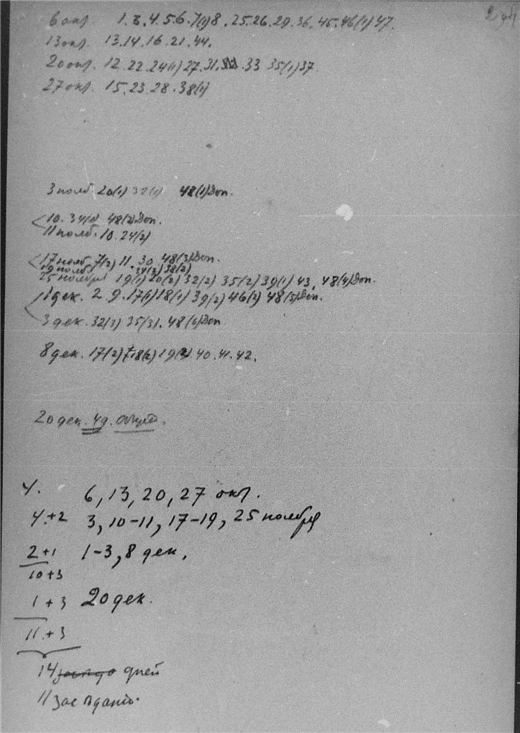 6 окт. 1.3.4.5.6.7(1)8, 25.26.29.36, 45.46(1)47.
13 окт. 13.14.16.21.44.
20 окт. 12.22.24(1)27.31. 33 35(1)37
27 окт. 15.23.28.38(1)
3 нояб. 20(1) 32(1) 48(1)Доп.
10. 34(1) 48(2)Доп.
11 нояб. 10.24(2)
17 нояб. 7(2) 11. 30. 48(3)Доп.
19 нояб. 34(3) 38(2)
25 ноября 19(1) 20(2) 32(2) 35(2) 39(1) 43. 48(4)Доп.
1 дек. 2. 9. 17(1)18(1) 39(2) 46(2) 48(5)Доп.
3 дек. 32(3) 35(3). 48(6)Доп
8 дек. 17(2) 18(2) 19(2) 40.41.42.
20 дек. 49.
4. 6, 13, 20, 27 окт.
4.+2 3, 10-11, 17-19, 25 ноября
2+1 1-3, 8 дек.
10+3
1+3 20 дек.
11+3
14 дней
11 заседаний.